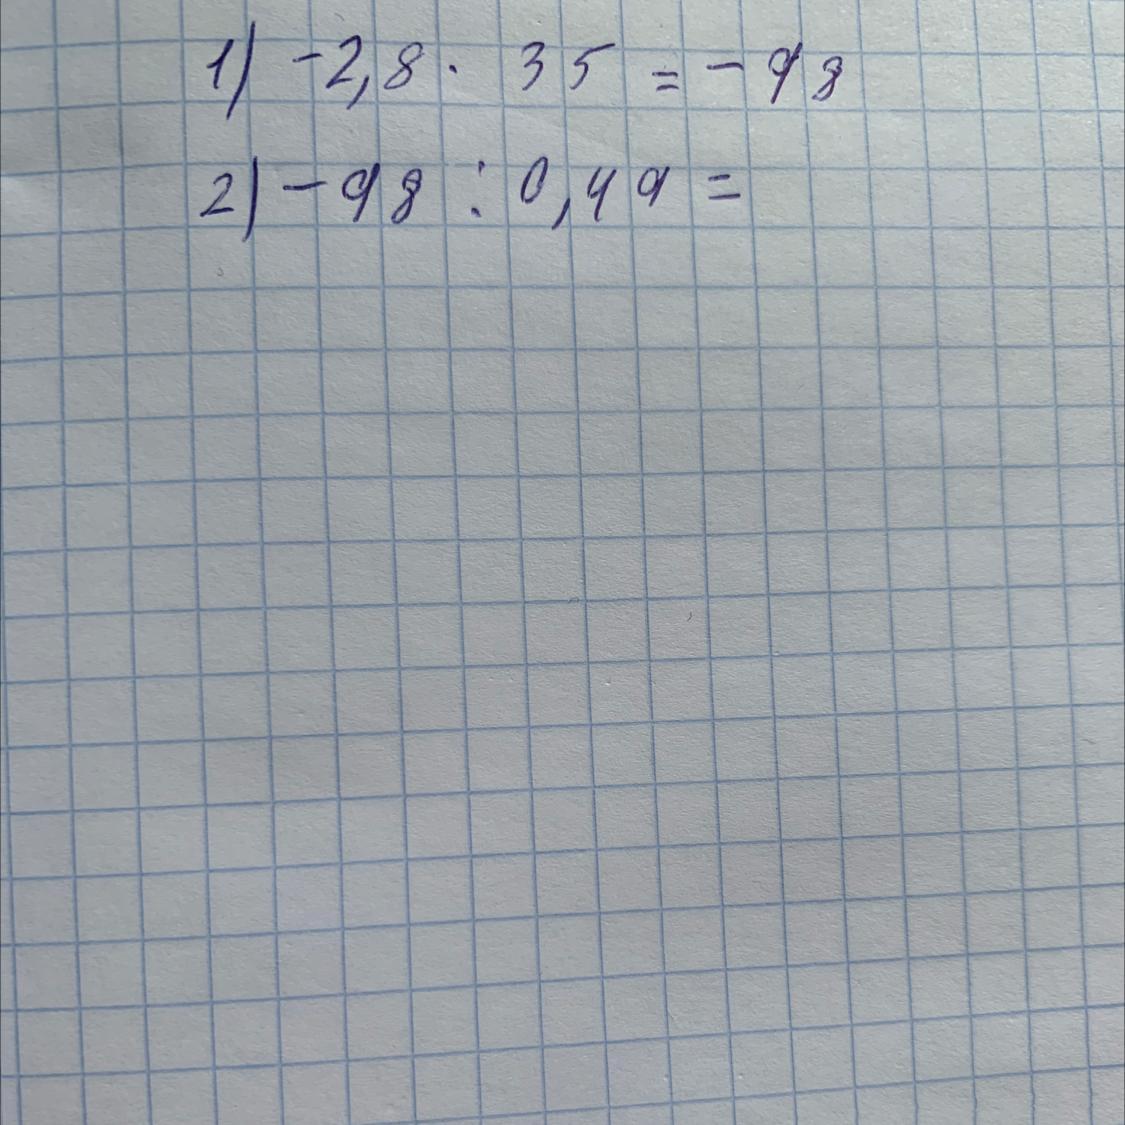 1) -2,8 · 35 = -98
2) -98 : 0,49 =